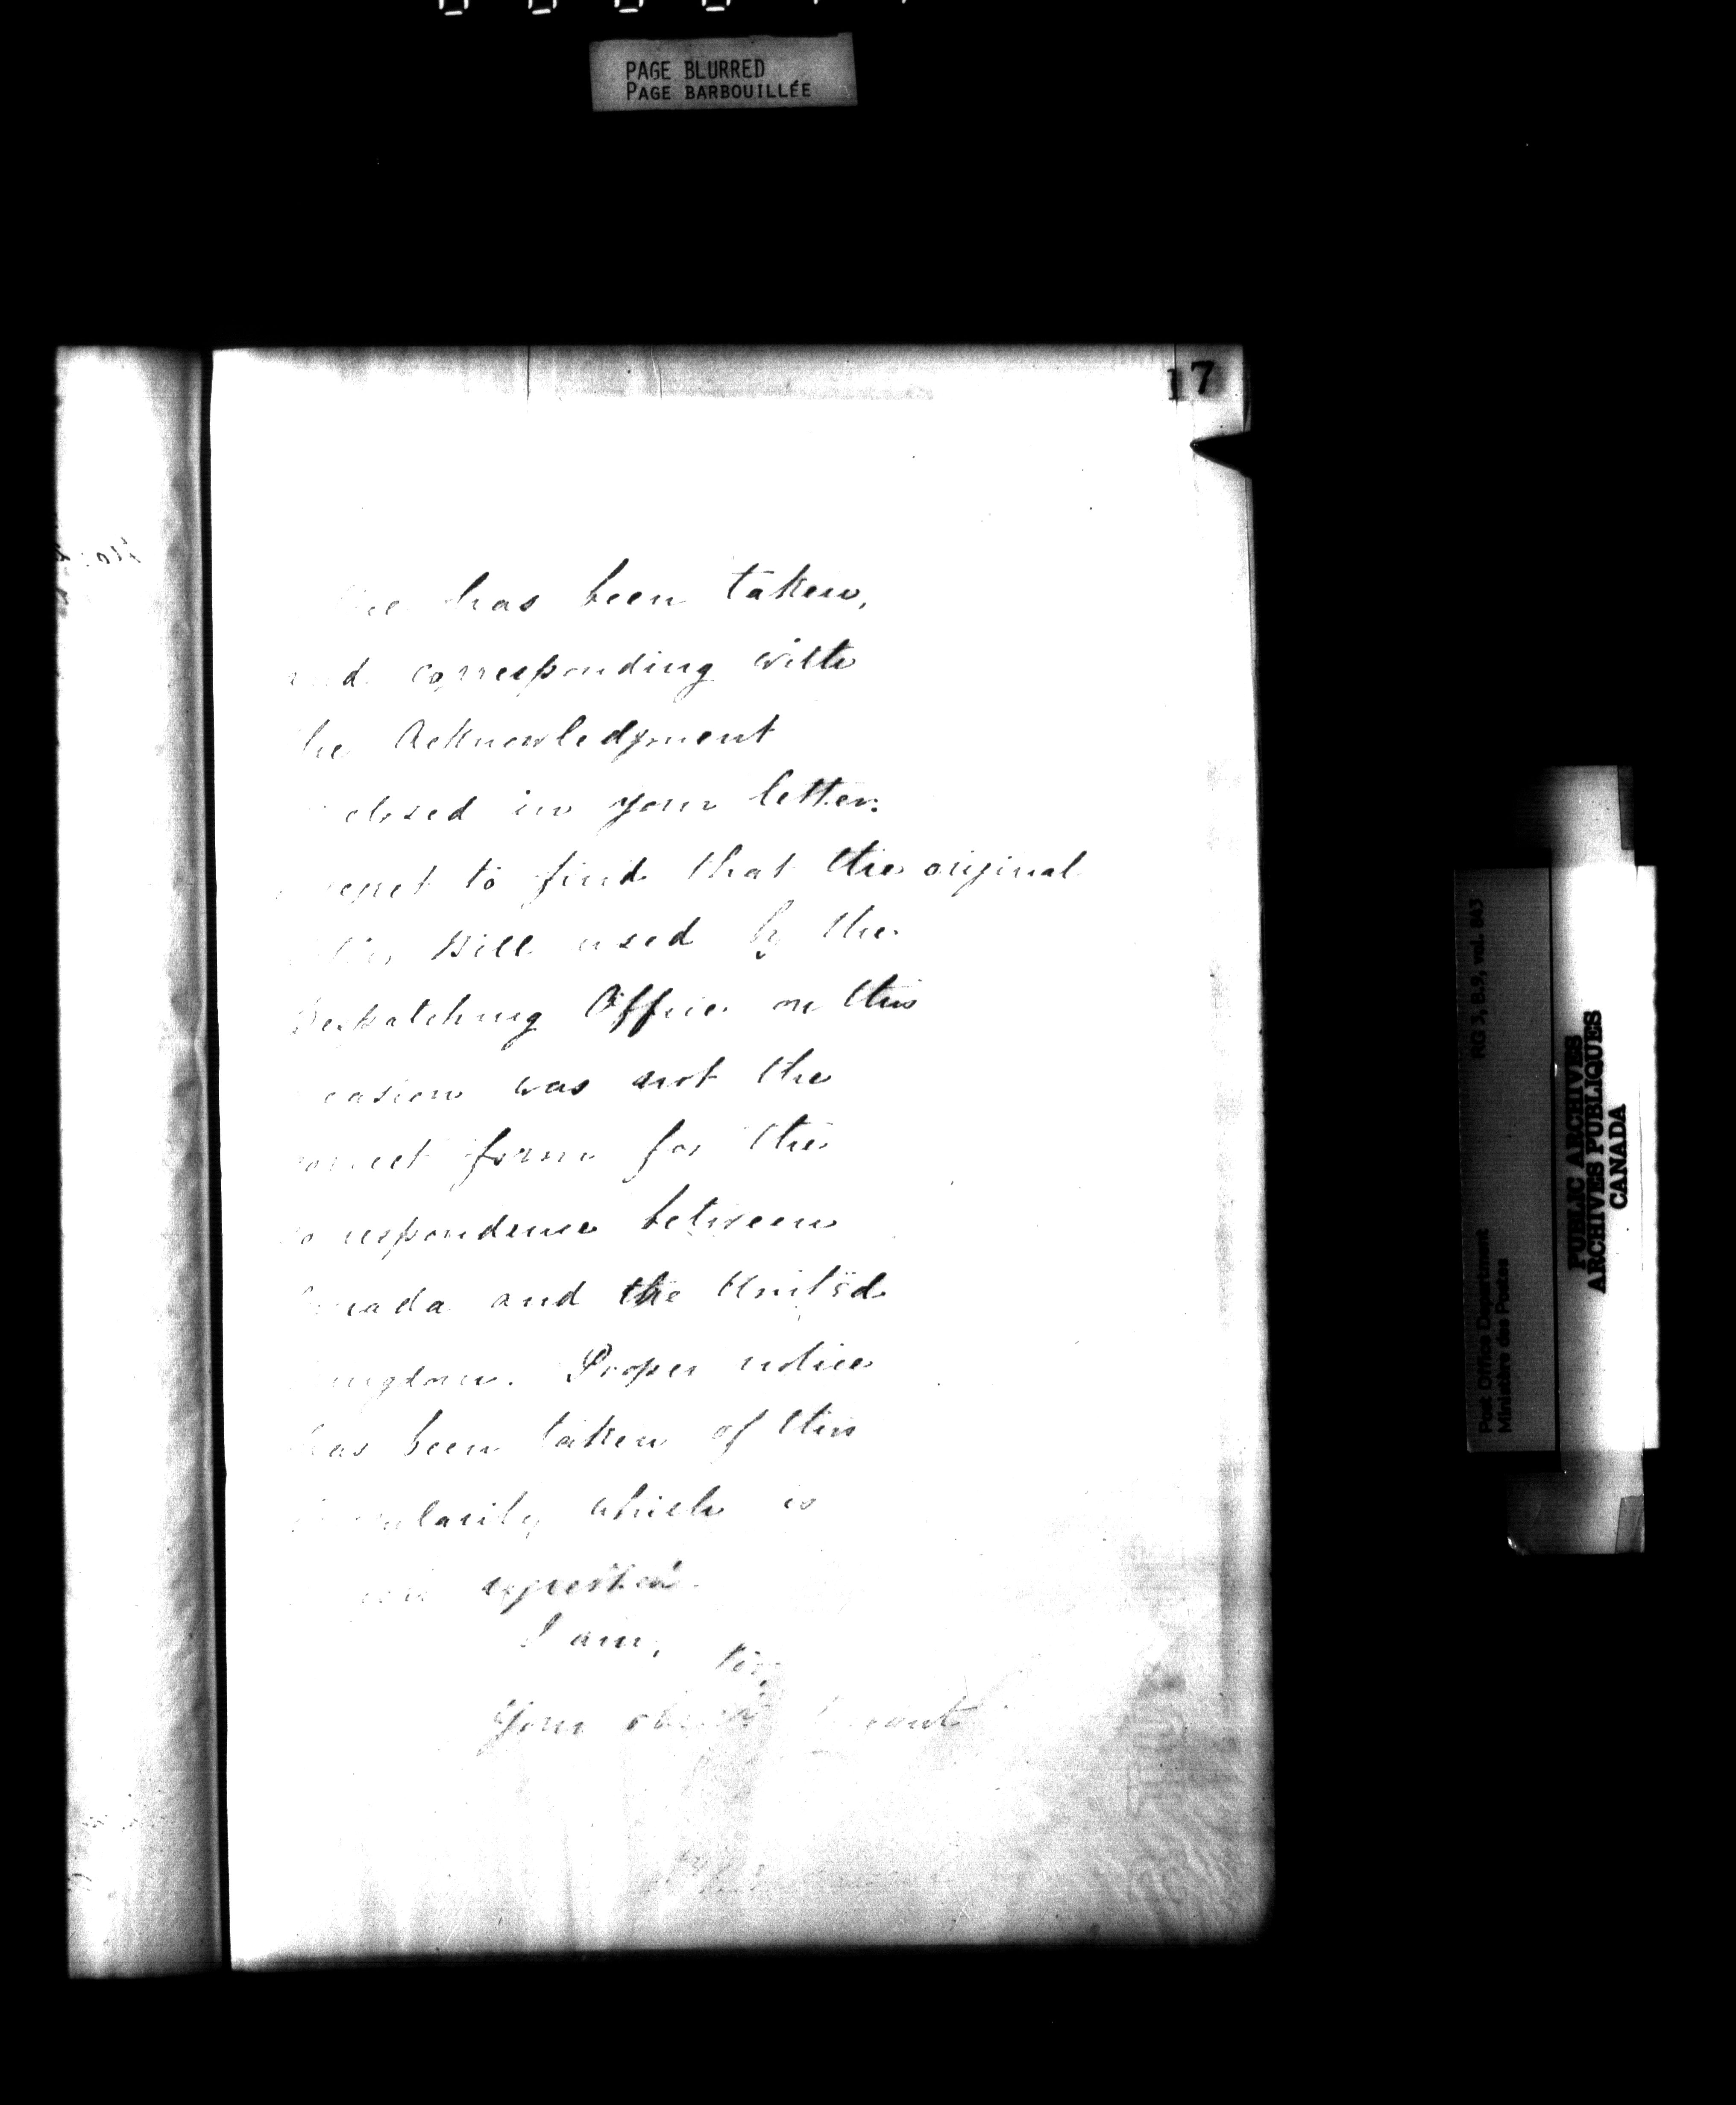 PAGE BLURRED
PAGE BARBOUILLÉE
17
has been taken,
corresponding with
the Acknowledgment
closed in your letter.
regret to find that the original
Bill used by the
Despatching Office on this
casion was not the
correct form for the
correspondence between
Canada and the United
ingdom. Proper notice
has been taken of this
ularity which is
regretted.
I am,
Sir,
Your obedt Servant
Post Office Department
Ministère des Postes
RG 3, B.9, vol. 843
PUBLIC ARCHIVES
ARCHIVES PUBLIQUES
CANADA